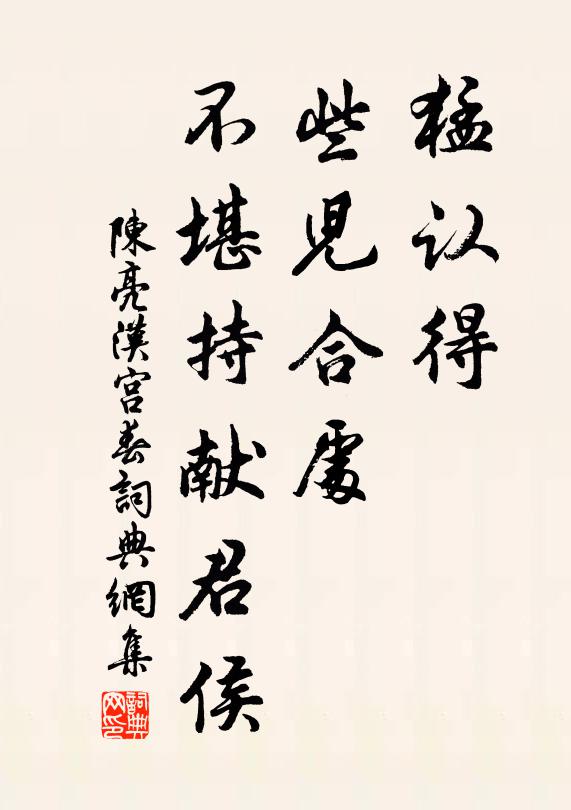 猛认得
些児合處
不堪持献君侯
陳亮漢宮春詞典網集
詞典
网印